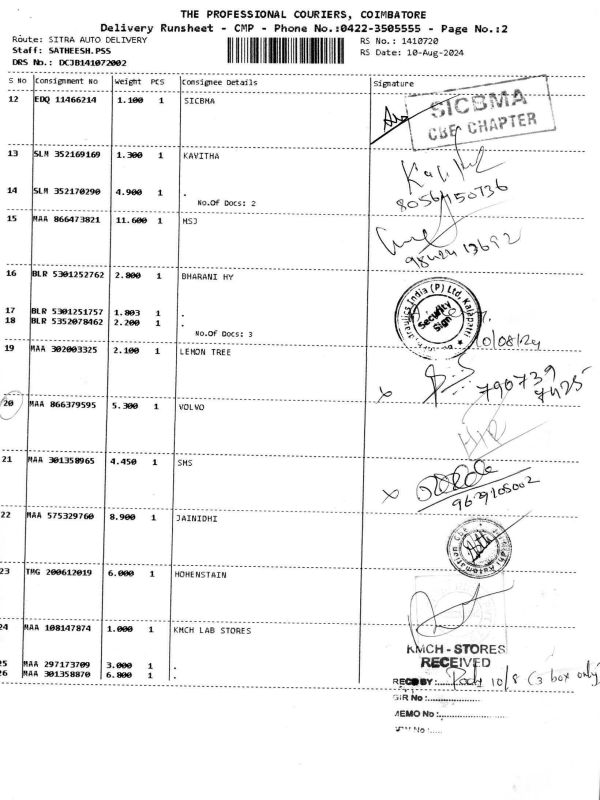 THE PROFESSIONAL COURIERS, COIMBATORE
Delivery Runsheet - CMP - Phone No.:0422-3505555 - Page No.:2
Route: SITRA AUTO DELIVERY
RS No.: 1410720
Staff: SATHEESH.PSS
RS Date: 10-Aug-2024
DRS No.: DCJB141072002
S No Consignment No Weight PCS Consignee Details Signature
12 EDQ 11466214 1.100 1 SICBMA
SICBMA
CBE CHAPTER
13 SLM 352169169 1.300 1 KAVITHA
14 SLM 352170290 4.900 1 .
No.Of Docs: 2
15 MAA 866473821 11.600 1 MSJ
16 BLR 5301252762 2.800 1 BHARANI HY
draulics India (P) Ltd, Kalapatti
Security
Sign
17 BLR 5301251757 1.803 1 .
18 BLR 5352078462 2.200 1 .
No.Of Docs: 3
10/08/24
19 MAA 302003325 2.100 1 LEMON TREE
x
790739
7425
20 MAA 866379595 5.300 1 VOLVO
21 MAA 301358965 4.450 1 SMS
x
9629105002
22 MAA 575329760 8.900 1 JAINIDHI
Automation
23 TMG 200612019 6.000 1 HOHENSTAIN
24 MAA 108147874 1.000 1 KMCH LAB STORES
KMCH - STORES
RECEIVED
25 MAA 297173709 3.000 1 .
26 MAA 301358870 6.800 1 .
RECD BY : 10/8 (3 box only)
GIR No :
MEMO No :